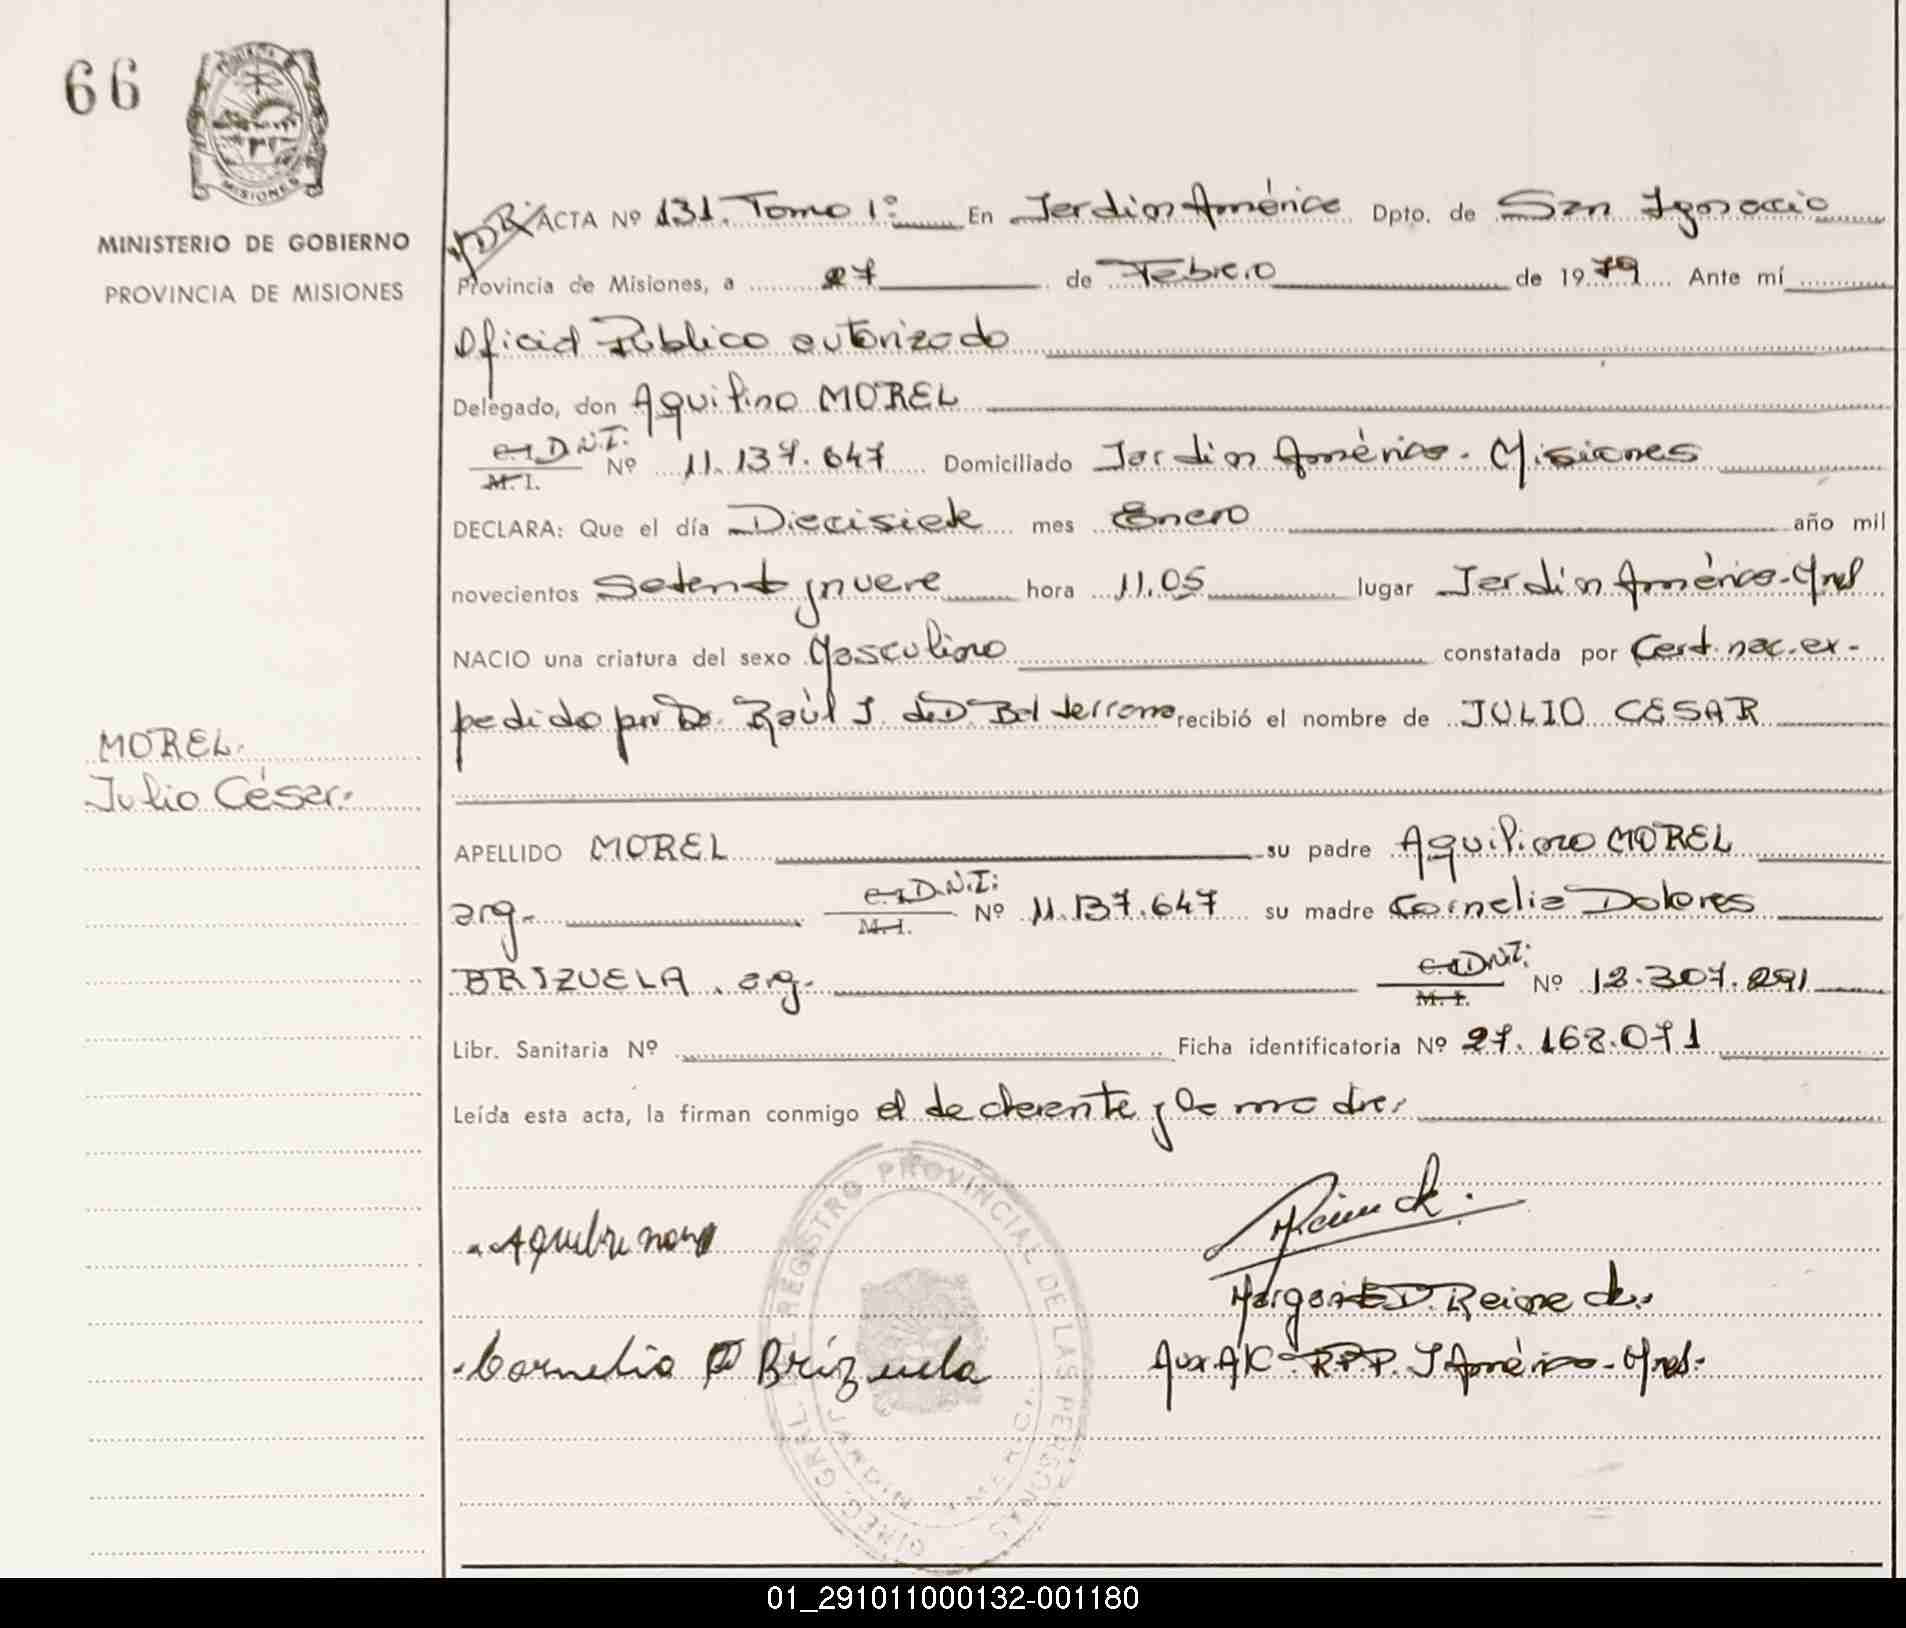 66
MISIONES
MINISTERIO DE GOBIERNO
PROVINCIA DE MISIONES
MOREL.
Julio César.
ACTA Nº 131. Tomo 1º En Jardin América Dpto. de San Ignacio
Provincia de Misiones, a 27 de Febrero de 1979 Ante mí
Oficial Público autorizado
Delegado, don Aquilino MOREL
C.I. D.N.I. M.I. Nº 11.137.647 Domiciliado Jardin América. Misiones
DECLARA: Que el día Diecisiete mes Enero año mil
novecientos Setenta y nueve hora 11.05 lugar Jardin América-Mnes
NACIO una criatura del sexo Masculino constatada por Cert. nac. ex-
pedido por Dr. Raúl J. de D. Balderrama recibió el nombre de JULIO CESAR
APELLIDO MOREL su padre Aquilino MOREL
arg. C.I. D.N.I. M.I. Nº 11.137.647 su madre Cornelia Dolores
BRIZUELA, arg. C.I. D.N.I. M.I. Nº 12.307.291
Libr. Sanitaria Nº Ficha identificatoria Nº 27.168.071
Leída esta acta, la firman conmigo el declarante y la madre.
DIREC. GRAL. DEL REGISTRO PROVINCIAL DE LAS PERSONAS
Cornelia D Brizuela
Margarita D. Reine de.
Aux. A/C. R.P.P. J. América-Mnes.
01_291011000132-001180